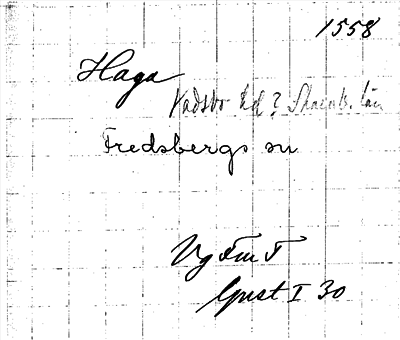 1558
Haga
Vadsbo hd? Skarab. län
Fredsbergs sn
Vg Fmt
Gust I 30